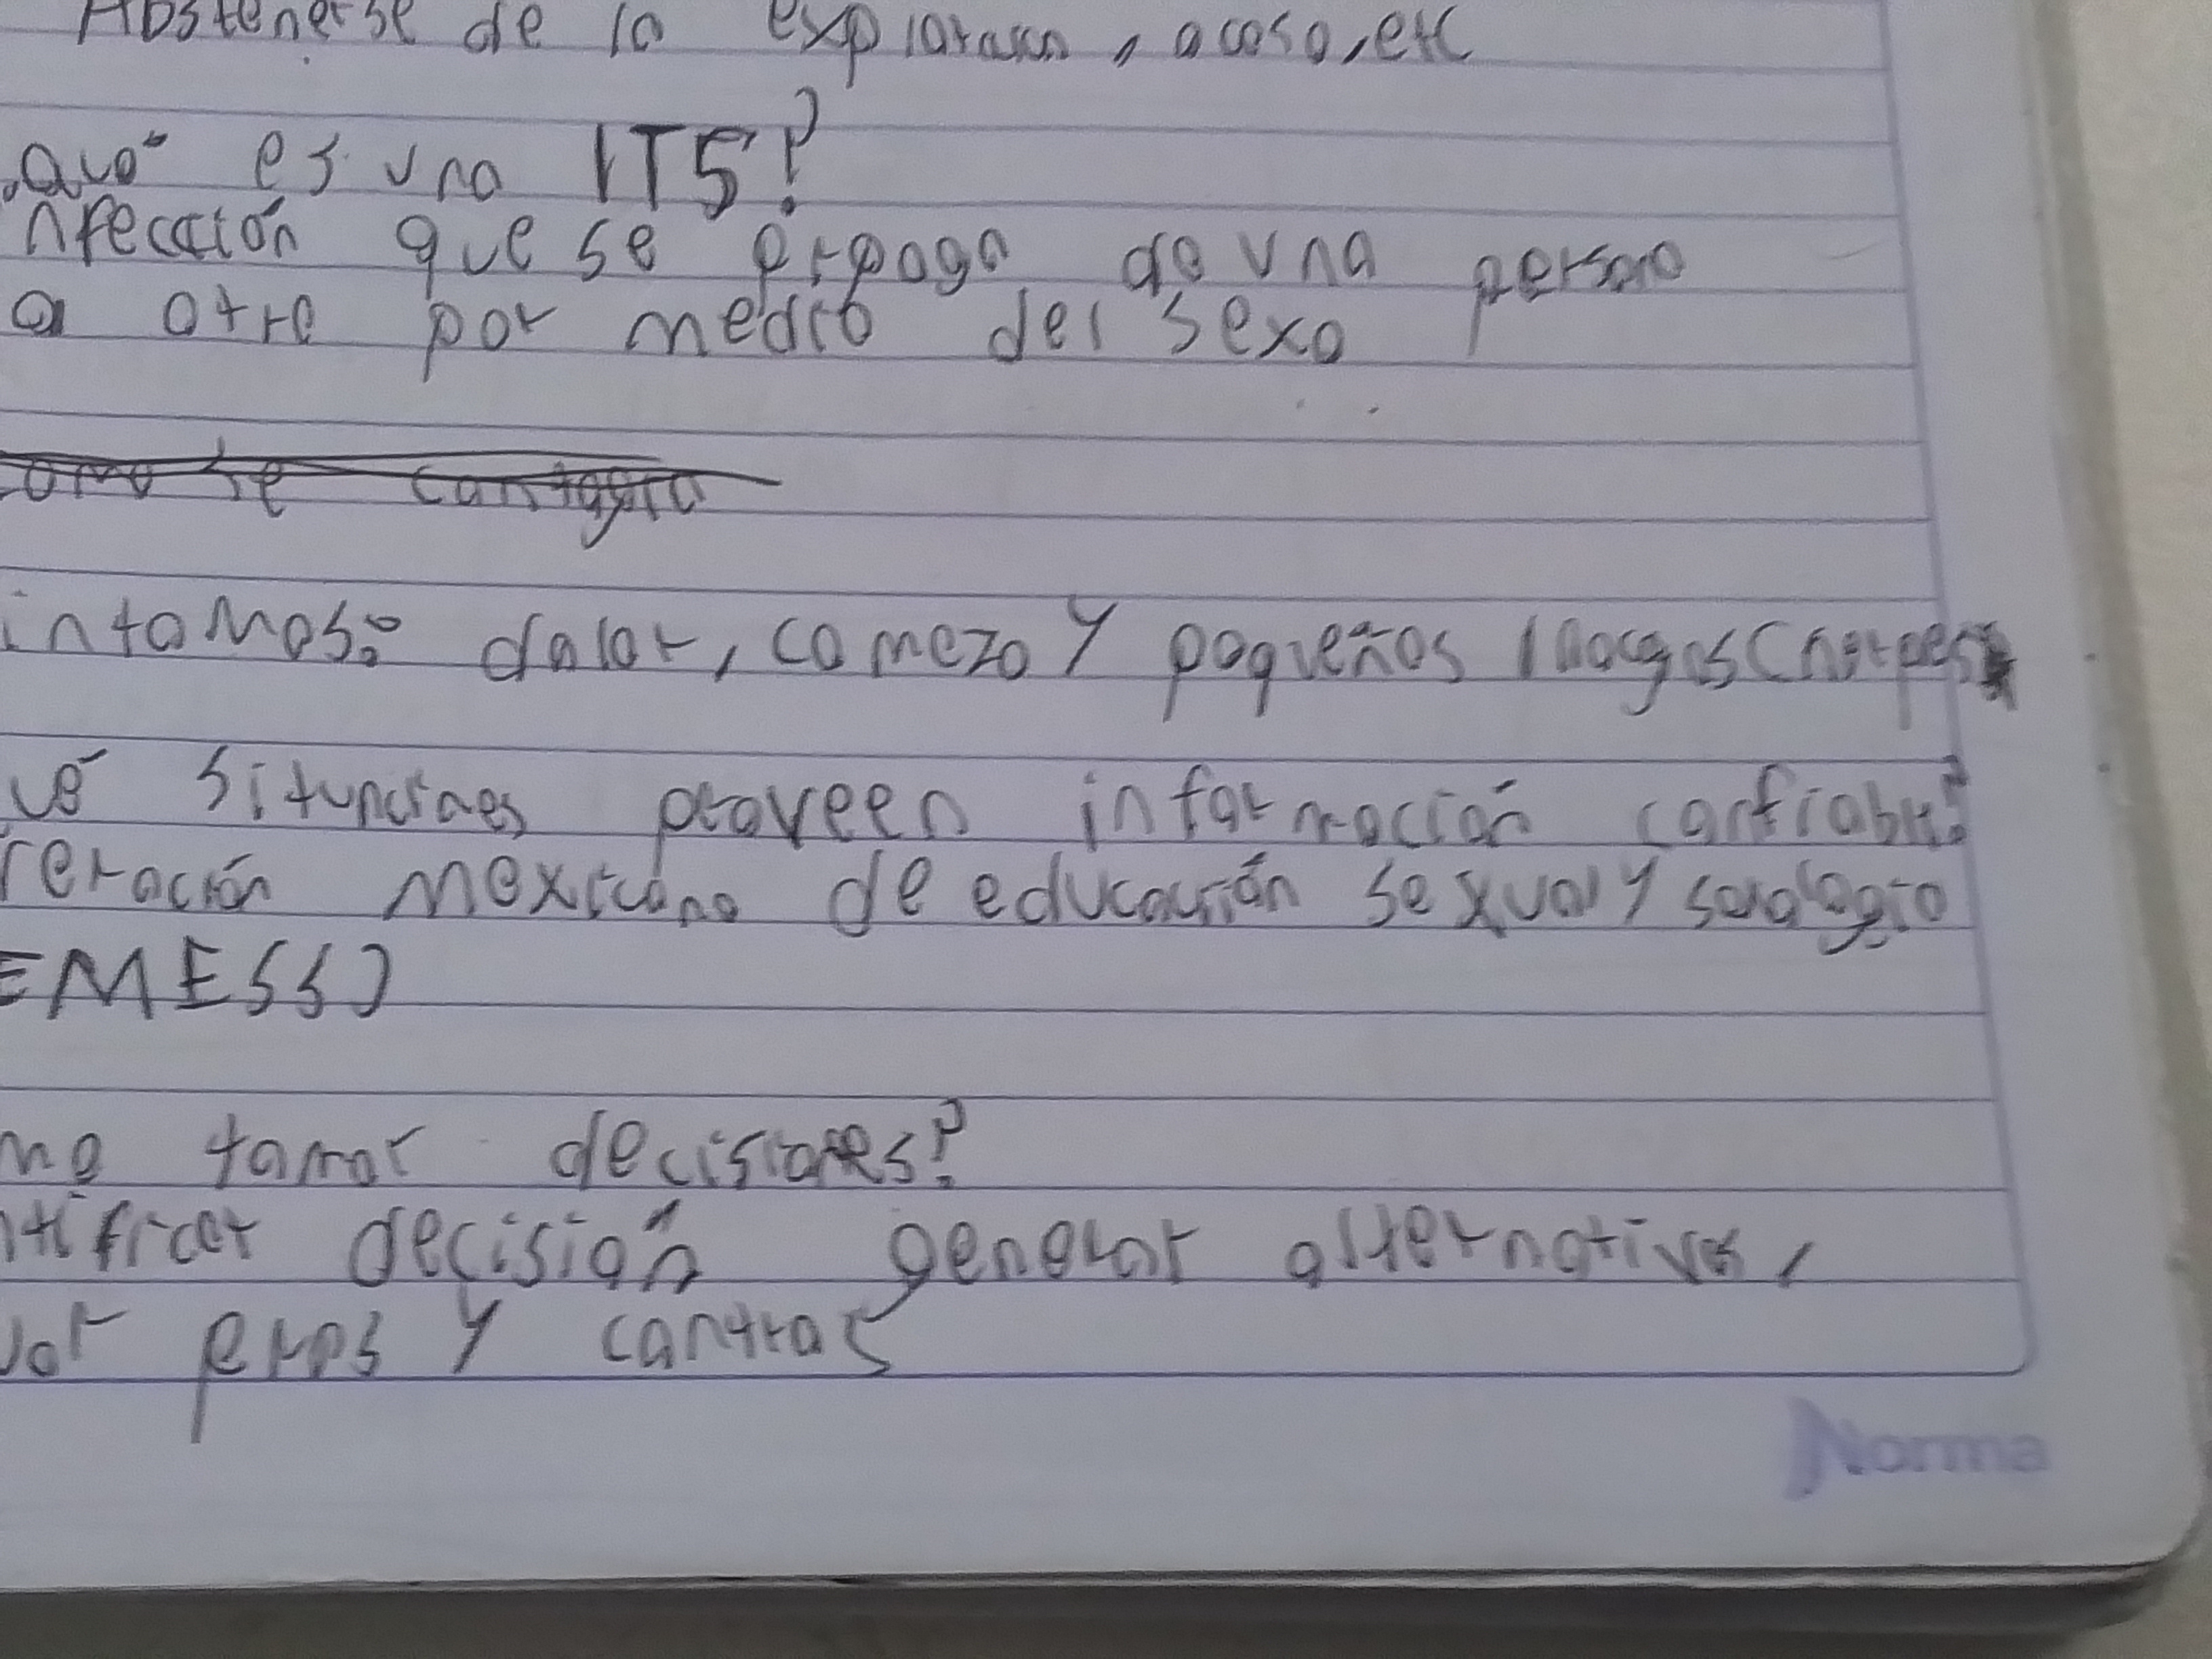 Abstenerse de la explotación, acoso, etc
¿qué es una ITS?
nfección que se propaga de una persona
a otra por medio del sexo
como se contagia
intomos: dolor, comezo y pequeños (herpes
ué situaciones proveen información confiable?
eración mexicana de educación sexual y sexología
EMESS)
mo tomar decisiones?
ntificar decisión generar alternativas,
uar pros y contras
Norma